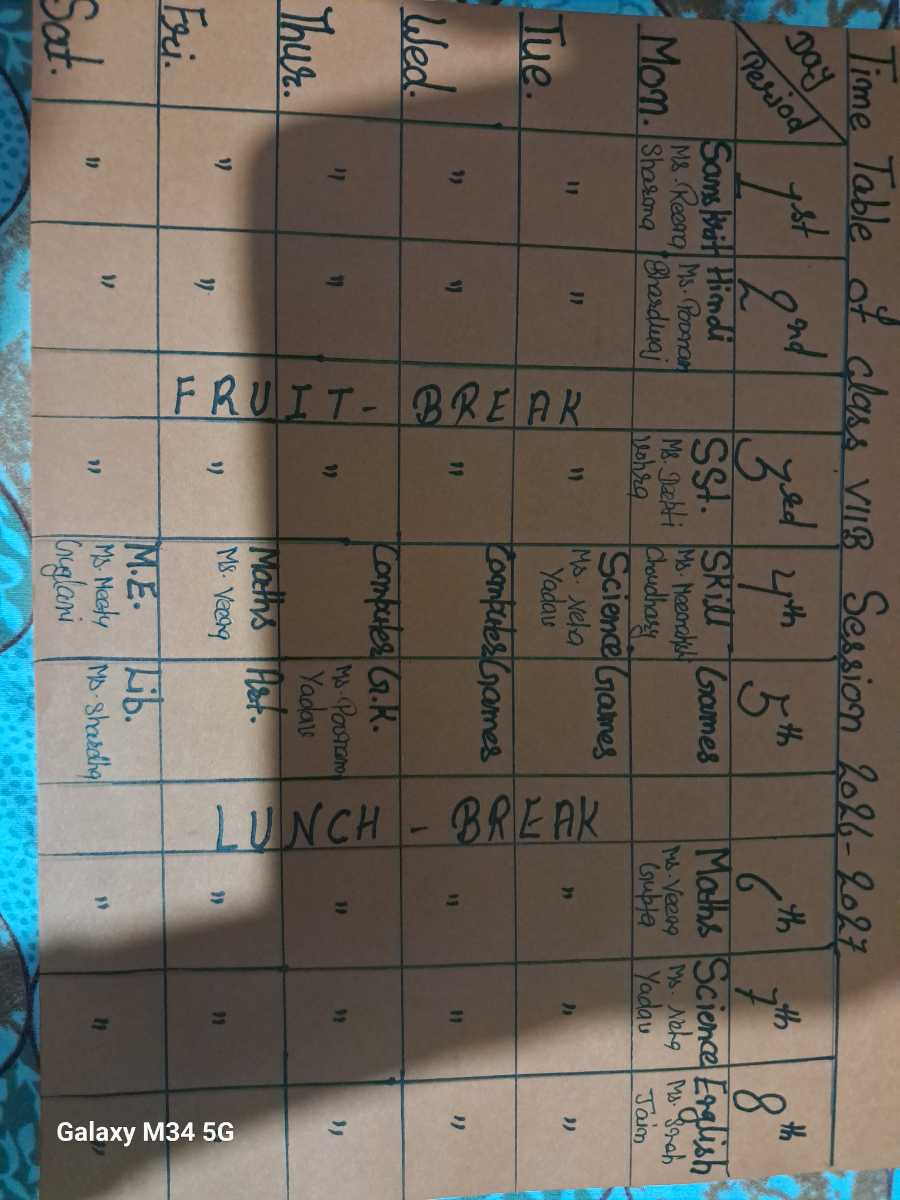 Time Table of class VII B Session 2026-2027
Day Period 1st 2nd 3rd 4th 5th 6th 7th 8th
Mon. Sanskrit Hindi SSt. Skill Games Maths Science English
Ms. Reena Ms. Poonam Ms. Deepti Ms. Meenakshi Ms. Veena Ms. Neha Ms.
Sharma Bhardwaj Vohra Choudhary Gupta Yadav Jain
Tue. " " " Science Games " " "
Ms. Neha
Yadav
Wed. " " " Computer Games " " "
Thur. " " " Computer G.K. " " "
Ms. Poonam
Yadav
Fri. " " " Maths Art. " " "
Ms. Veena
Sat. " " " M.E. Lib. " " "
Ms. Ms. Shardha
FRUIT-BREAK
LUNCH-BREAK
Galaxy M34 5G